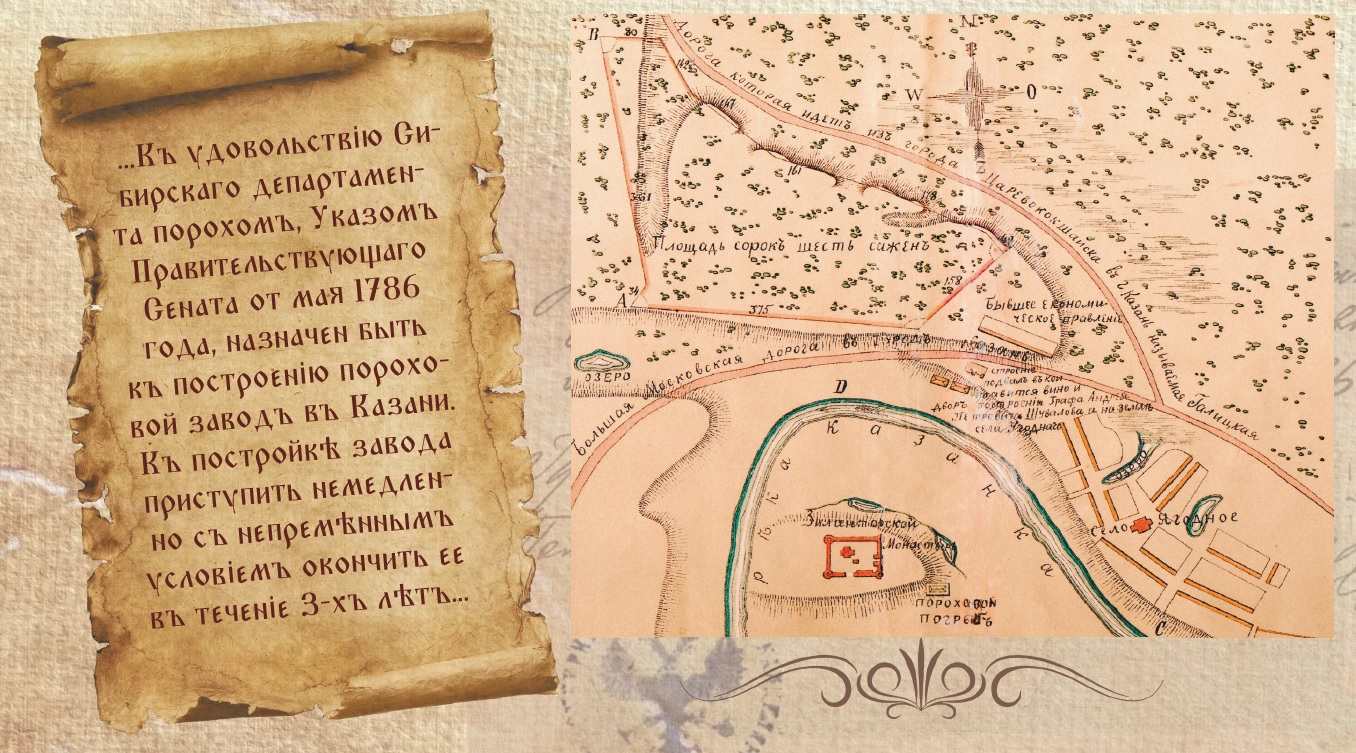 ...Къ удовольствію Си-
бирскаго департамен-
та порохомъ, Указомъ
Правительствующаго
Сената от мая 1786
года, назначен быть
къ построенію порохо-
вой заводъ въ Казани.
Къ постройкѣ завода
приступить немедлен-
но съ непремѣннымъ
условіемъ окончить ее
въ теченіе 3-хъ лѣтъ...
N
W
O
B
80
Дорога которая идетъ изъ города Царевсокошайска въ г Казань называимая Галицкая
167
161
361
Площадь сорокъ шесть саженъ
158
Бывшее Економи-
ческое правление
A
34
375
Большая Московская дорога въ городъ Казань
озеро
строение
подвалъ въ кои
ставится вино и
дворъ построенія Графа Андрея
Петровича Шувалова и на землѣ
села Ягоднаго
D
рѣка Казанка
озеро
Село Ягодное
Зилантьторской
Монастырь
пороховой
погребъ
C